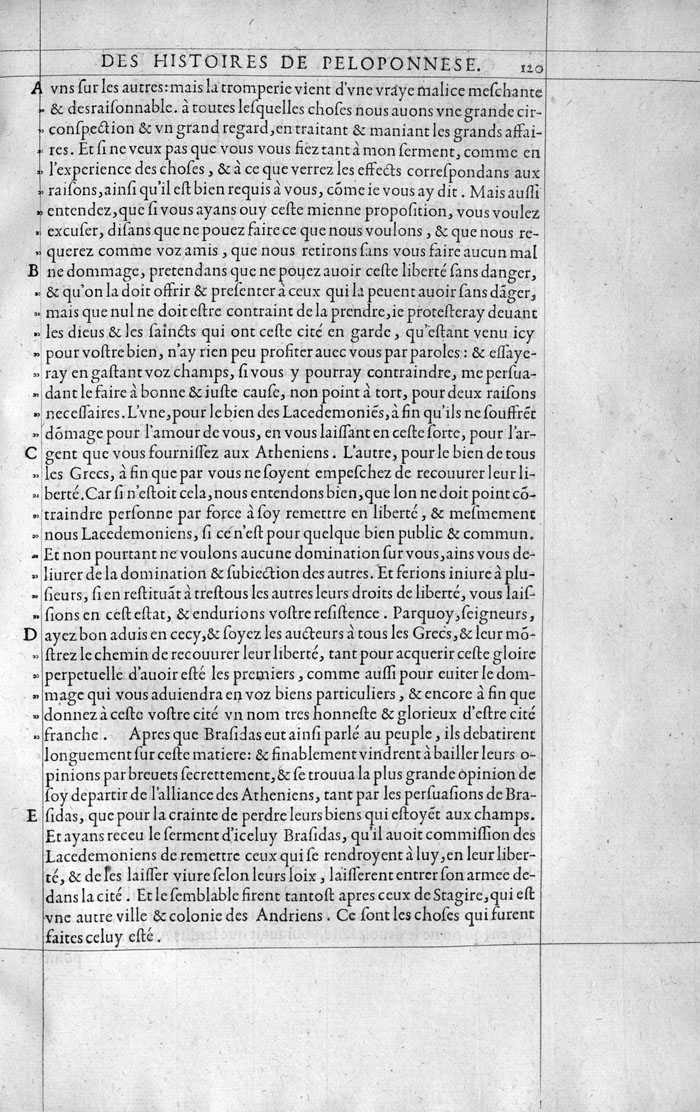 DES HISTOIRES DE PELOPONNESE. 120
A vns sur les autres: mais la tromperie vient d'vne vraye malice meschante
& desraisonnable. à toutes lesquelles choses nous auons vne grande cir-
conspection & vn grand regard, en traitant & maniant les grands affai-
res. Et si ne veux pas que vous vous fiez tant à mon serment, comme en
l'experience des choses, & à ce que verrez les effects correspondans aux
raisons, ainsi qu'il est bien requis à vous, cõme ie vous ay dit. Mais aussi
entendez, que si vous ayans ouy ceste mienne proposition, vous voulez
excuser, disans que ne pouez faire ce que nous voulons, & que nous re-
querez comme voz amis, que nous retirons sans vous faire aucun mal
B ne dommage, pretendans que ne pouez auoir ceste liberté sans danger,
& qu'on la doit offrir & presenter à ceux qui la peuent auoir sans dãger,
mais que nul ne doit estre contraint de la prendre, ie protesteray deuant
les dieus & les saincts qui ont ceste cité en garde, qu'estant venu icy
pour vostre bien, n'ay rien peu profiter auec vous par paroles: & essaye-
ray en gastant voz champs, si vous y pourray contraindre, me persua-
dant le faire à bonne & iuste cause, non point à tort, pour deux raisons
necessaires. L'vne, pour le bien des Lacedemoniẽs, à fin qu'ils ne souffrẽt
dõmage pour l'amour de vous, en vous laissant en ceste sorte, pour l'ar-
C gent que vous fournissez aux Atheniens. L'autre, pour le bien de tous
les Grecs, à fin que par vous ne soyent empeschez de recouurer leur li-
berté. Car si n'estoit cela, nous entendons bien, que lon ne doit point cõ-
traindre personne par force à soy remettre en liberté, & mesmement
nous Lacedemoniens, si ce n'est pour quelque bien public & commun.
Et non pourtant ne voulons aucune domination sur vous, ains vous de-
liurer de la domination & subiection des autres. Et ferions iniure à plu-
sieurs, si en restituãt à trestous les autres leurs droits de liberté, vous lais-
sions en cest estat, & endurions vostre resistence. Parquoy, seigneurs,
D ayez bon aduis en cecy, & soyez les aucteurs à tous les Grecs, & leur mõ-
strez le chemin de recouurer leur liberté, tant pour acquerir ceste gloire
perpetuelle d'auoir esté les premiers, comme aussi pour euiter le dom-
mage qui vous aduiendra en voz biens particuliers, & encore à fin que
donnez à ceste vostre cité vn nom tres honneste & glorieux d'estre cité
franche. Apres que Brasidas eut ainsi parlé au peuple, ils debatirent
longuement sur ceste matiere: & finablement vindrent à bailler leurs o-
pinions par breuets secrettement, & se trouua la plus grande opinion de
soy departir de l'alliance des Atheniens, tant par les persuasions de Bra-
E sidas, que pour la crainte de perdre leurs biens qui estoyẽt aux champs.
Et ayans receu le serment d'iceluy Brasidas, qu'il auoit commission des
Lacedemoniens de remettre ceux qui se rendroyent à luy, en leur liber-
té, & de les laisser viure selon leurs loix, laisserent entrer son armee de-
dans la cité. Et le semblable firent tantost apres ceux de Stagire, qui est
vne autre ville & colonie des Andriens. Ce sont les choses qui furent
faites celuy esté.